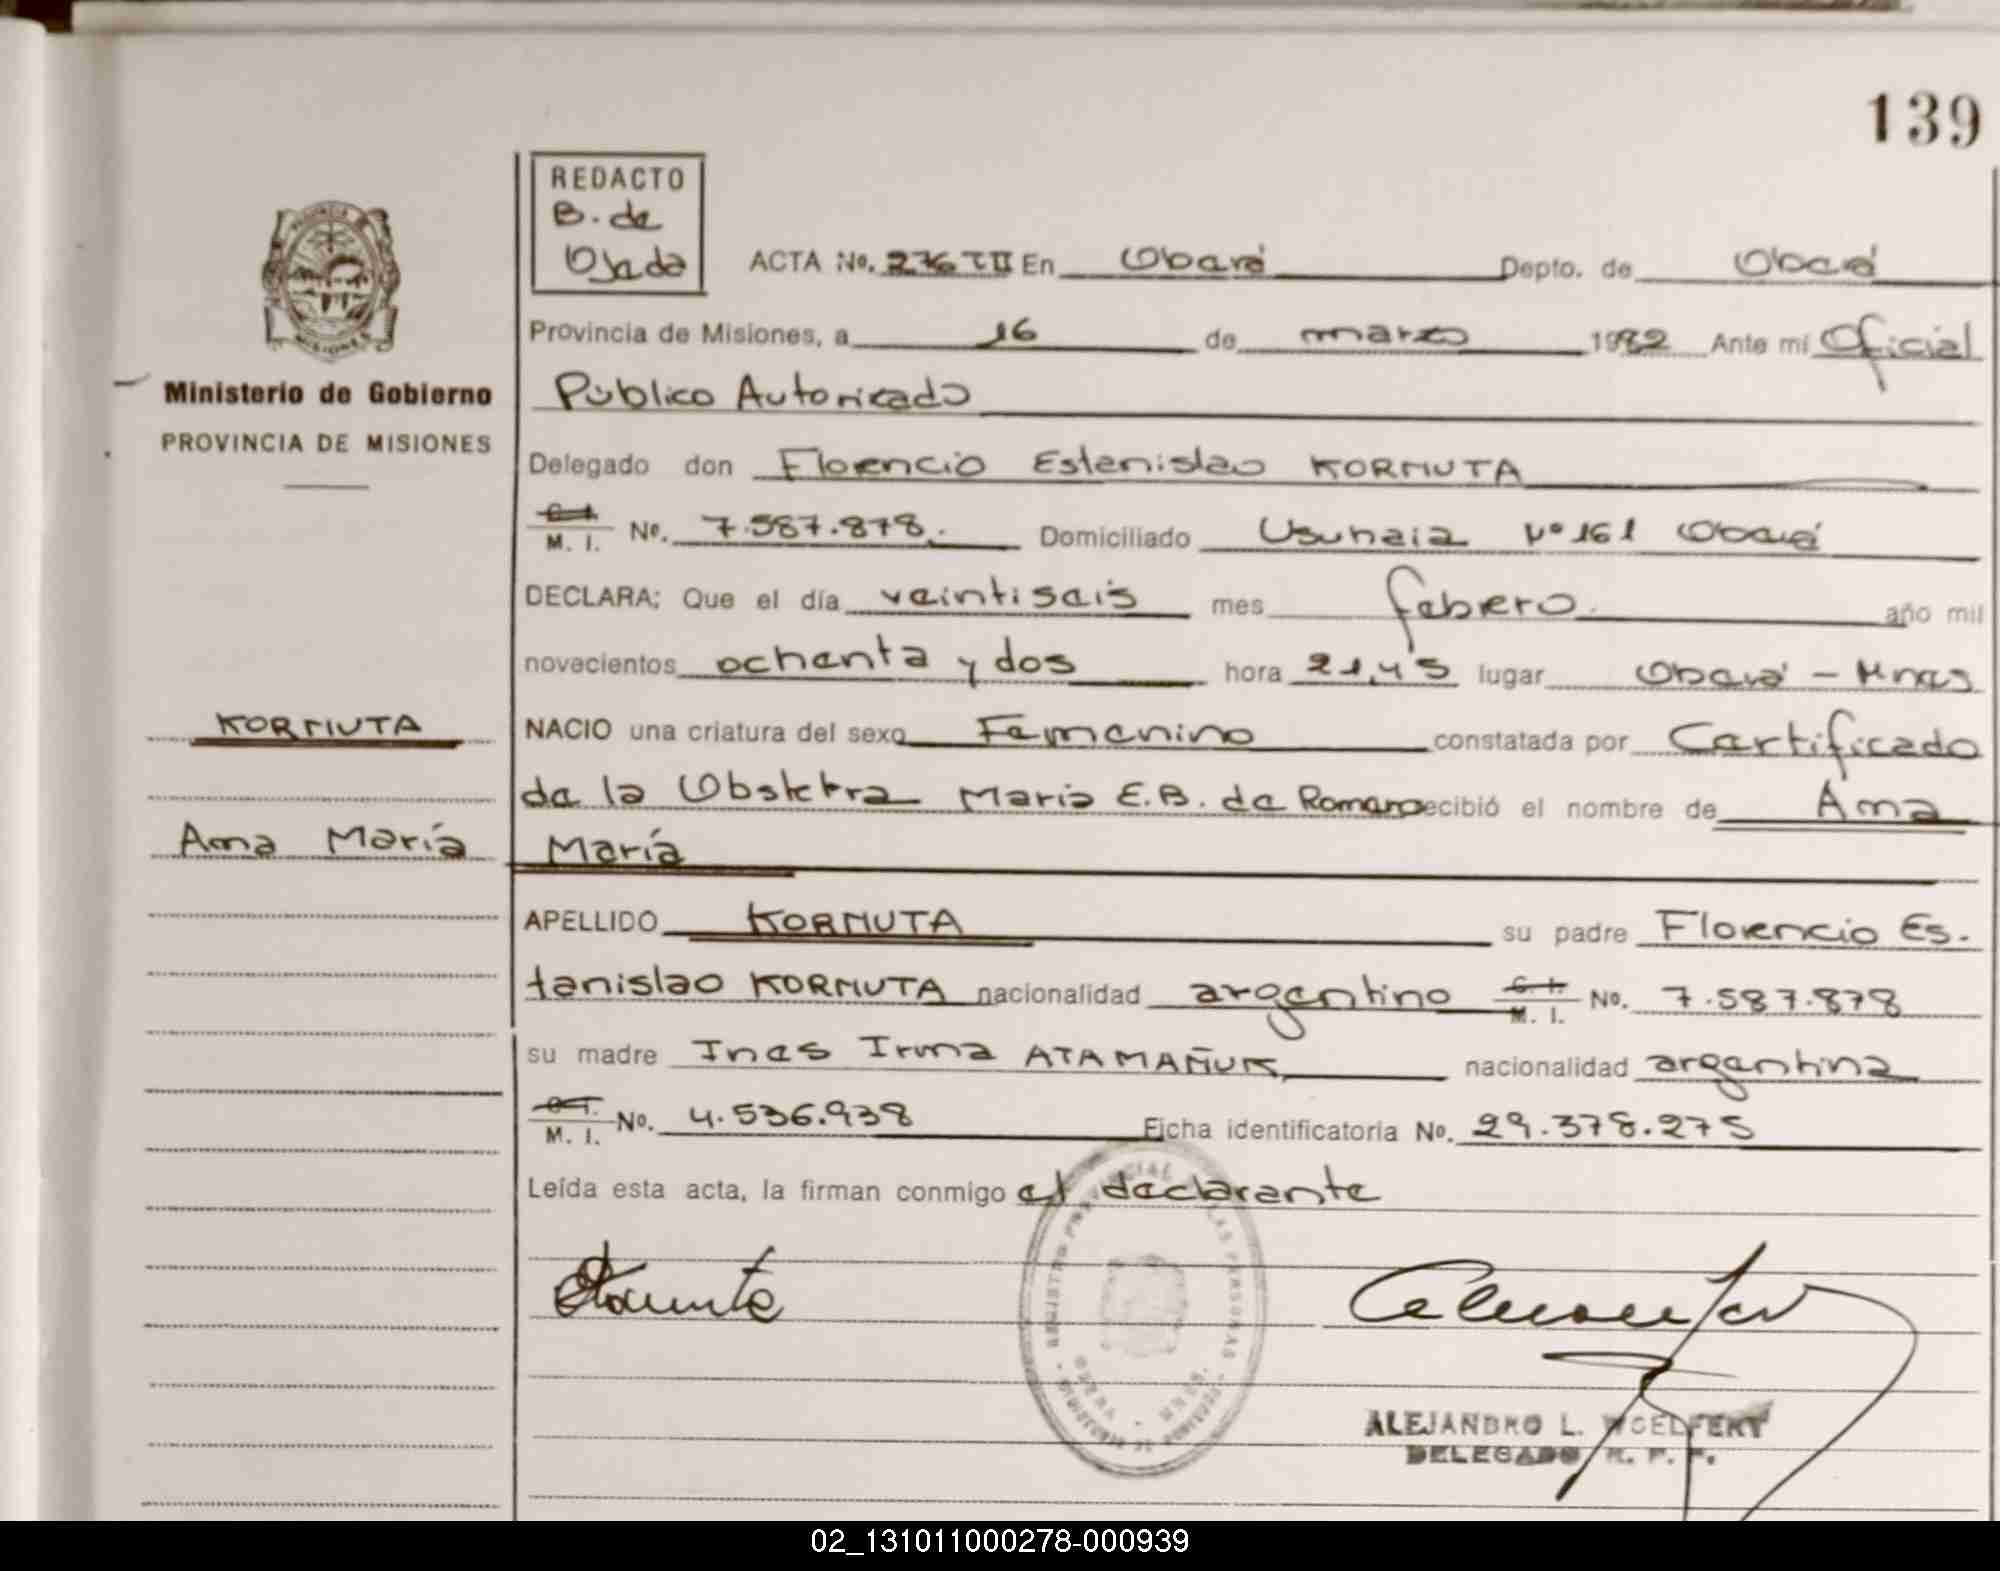 139
REDACTO
B. de
Ojeda
ACTA No. 276 TII En Oberá Depto. de Oberá
Provincia de Misiones, a 16 de marzo 1982 Ante mí Oficial
Ministerio de Gobierno
PROVINCIA DE MISIONES
Público Autorizado
Delegado don Florencio Estanislao KORMUTA
C. I.
M. I. No. 7.587.878. Domiciliado Usuhaia Nº 161 Oberá
DECLARA: Que el día veintiseis mes febrero. año mil
novecientos ochenta y dos hora 21,45 lugar Oberá - Mnes
KORMUTA
NACIO una criatura del sexo Femenino constatada por Certificado
de la Obstetra Maria E.B. de Romano recibió el nombre de Ana
Ana María
María
APELLIDO KORMUTA su padre Florencio Es-
tanislao KORMUTA nacionalidad argentino C. I.
M. I. No. 7.587.878
su madre Ines Irma ATAMAÑUK nacionalidad argentina
C. I.
M. I. No. 4.536.938 Ficha identificatoria No. 29.378.275
Leída esta acta, la firman conmigo el declarante
REGISTRO PROVINCIAL DE LAS PERSONAS
OBERA - MNES.
ALEJANDRO L. WOELFERT
DELEGADO R. P. P.
02_131011000278-000939